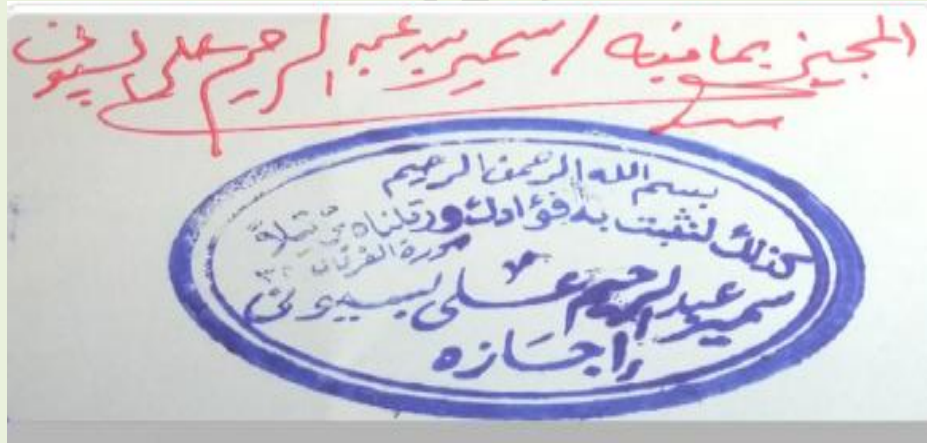 المجيز بما فيه / سمير بن عبد الرحيم على بسيونى
بسم الله الرحمن الرحيم
كذلك لنثبت به فؤادك ورتلناه ترتيلاً
سورة الفرقان ٣٢
سمير عبد الرحيم على بسيونى
إجازه